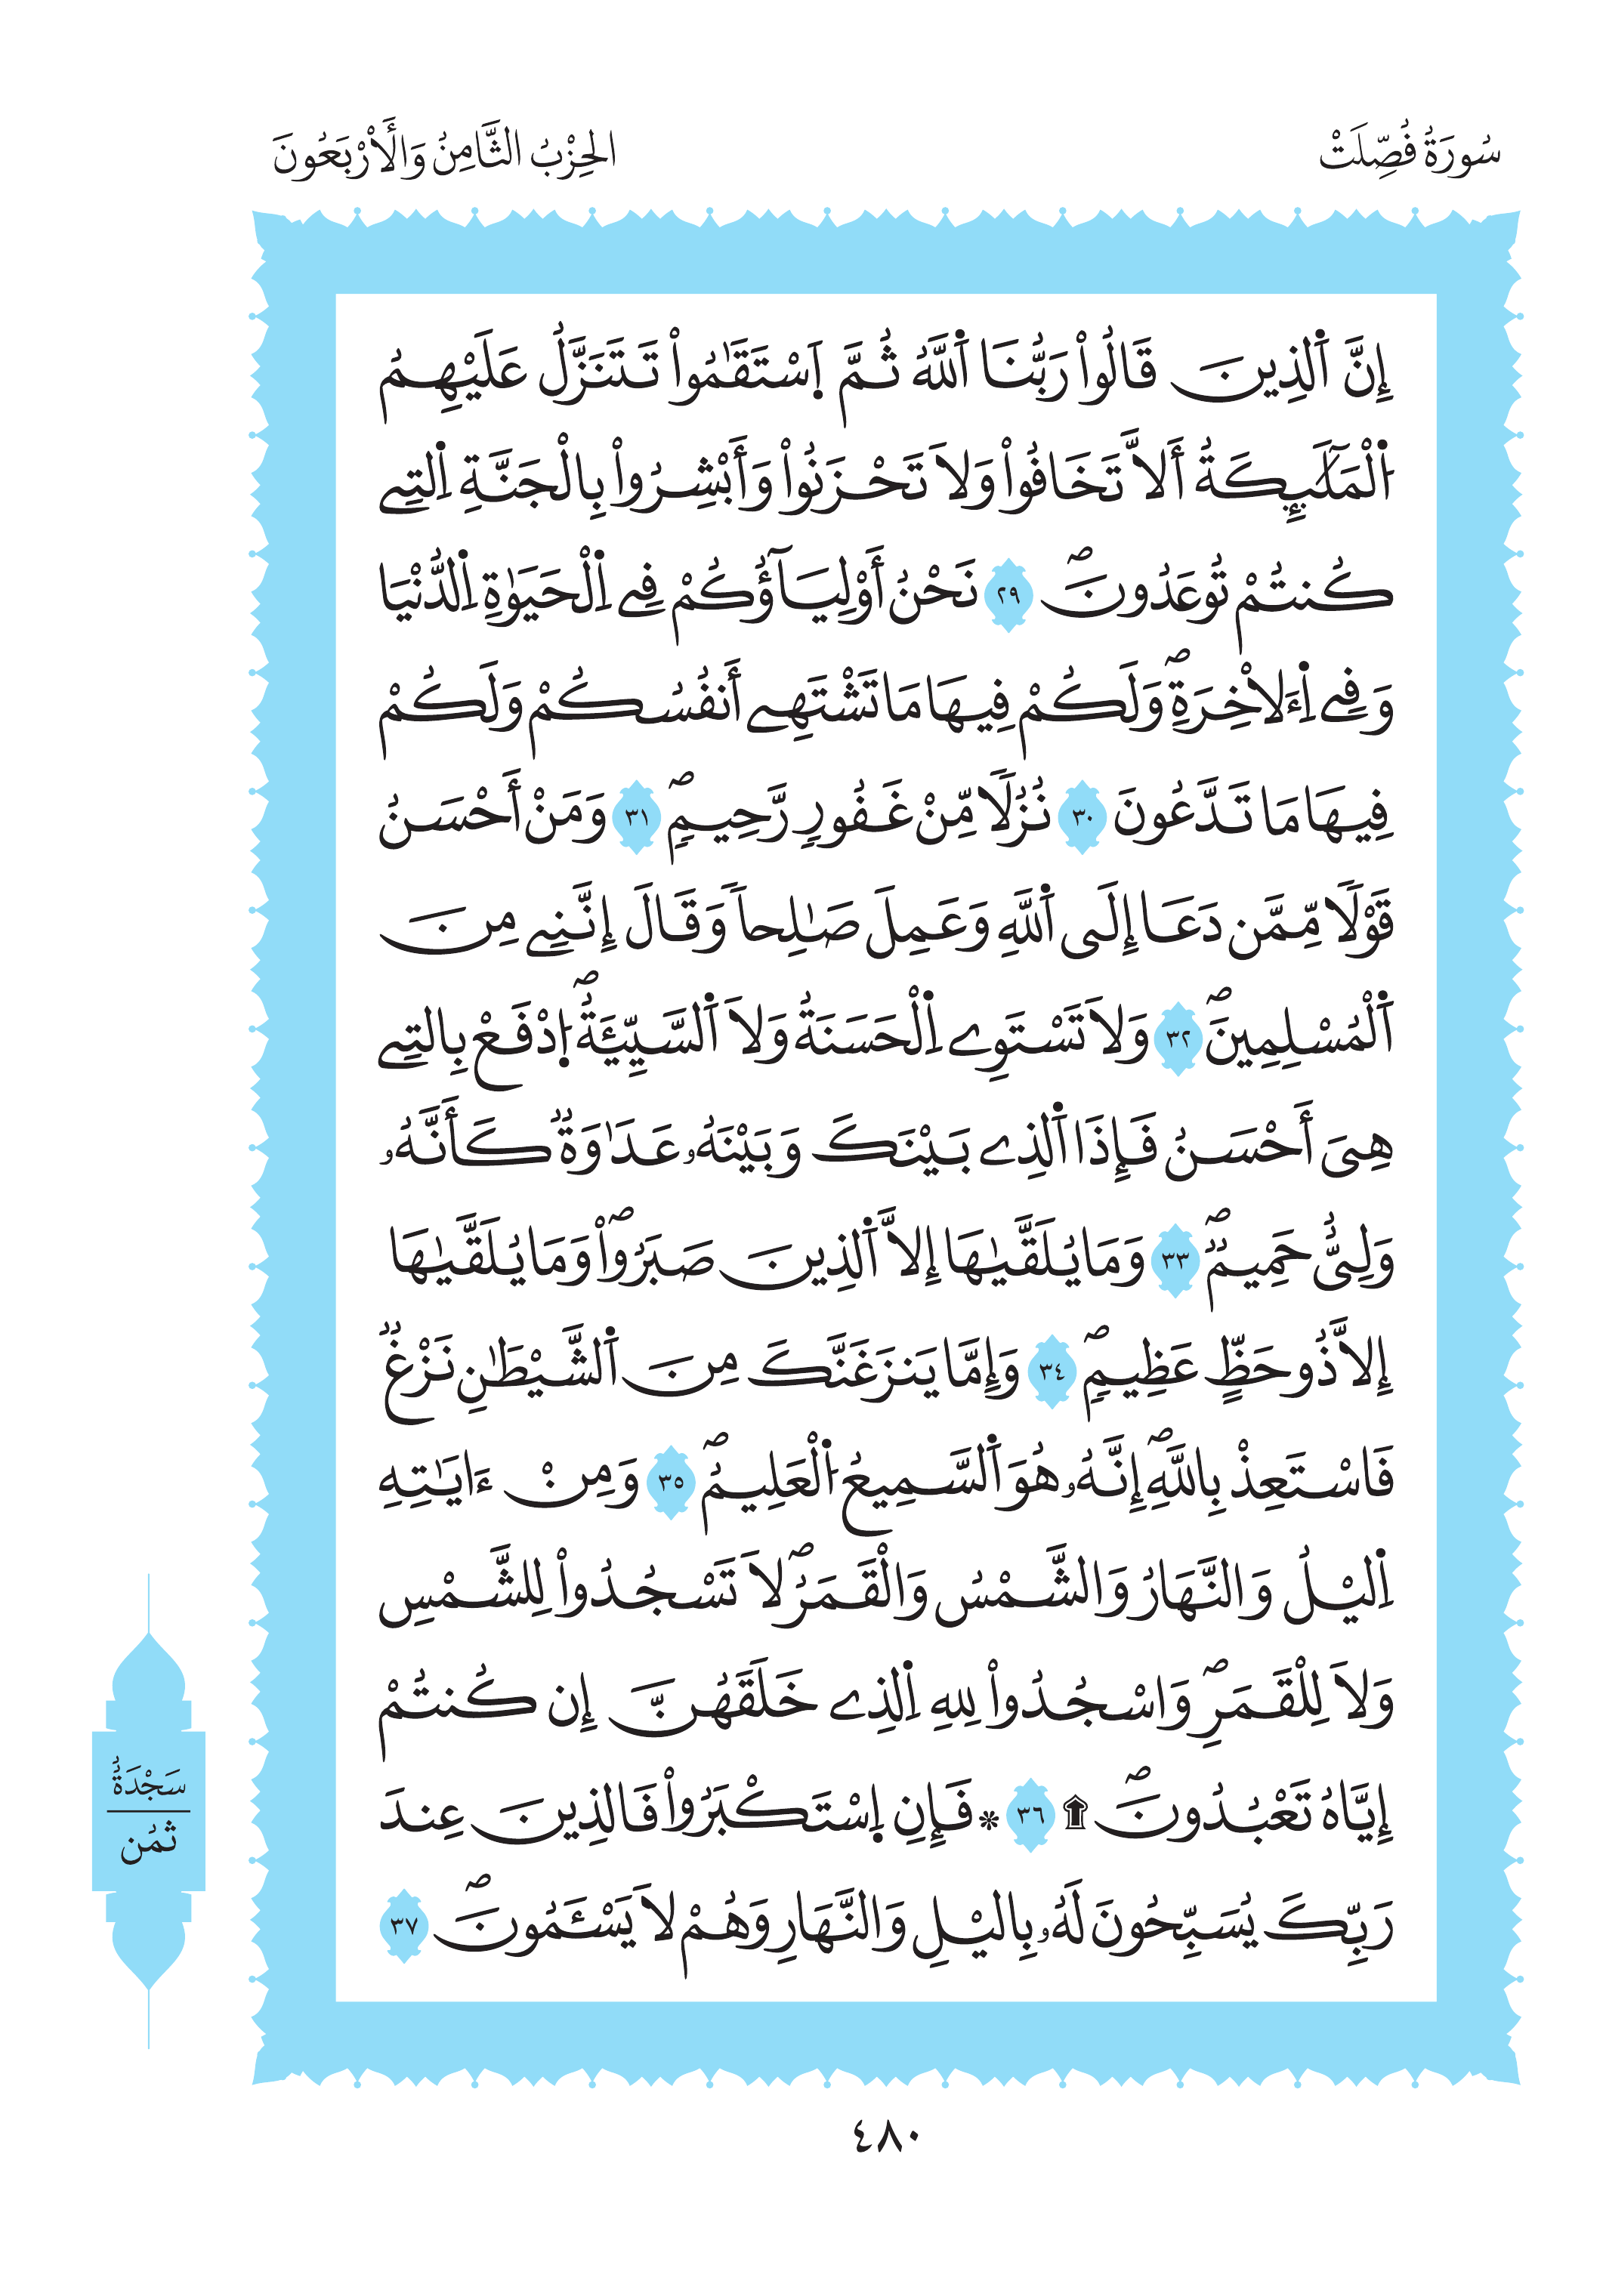 سُورَةُ فُصِّلَتْ
الحِزْبُ الثَّامِنُ وَالْأَرْبَعُونَ
إِنَّ اَ۬لذِينَ قَالُواْ رَبُّنَا اَ۬للَّهُ ثُمَّ اَ۪سْتَقَٰمُواْ تَتَنَزَّلُ عَلَيْهِمُ
اُ۬لْمَلَٰٓئِكَةُ أَلاَّ تَخَافُواْ وَلاَ تَحْزَنُواْ وَأَبْشِرُواْ بِالْجَنَّةِ اِ۬لتِے
كُنتُمْ تُوعَدُونَۖ ٢٩ نَحْنُ أَوْلِيَآؤُكُمْ فِے اِ۬لْحَيَوٰةِ اِ۬لدُّنْيَا
وَفِے اِ۬ءَلاْخِرَةِۖ وَلَكُمْ فِيهَا مَا تَشْتَهِے أَنفُسُكُمْ وَلَكُمْ
فِيهَا مَا تَدَّعُونَ ٣٠ نُزُلٗا مِّنْ غَفُورٖ رَّحِيمٖۖ ٣١ وَمَنْ أَحْسَنُ
قَوْلٗا مِّمَّن دَعَا إِلَى اَ۬للَّهِ وَعَمِلَ صَٰلِحاٗ وَقَالَ إِنَّنِے مِنَ
اَ۬لْمُسْلِمِينَۖ ٣٢ وَلاَ تَسْتَوِے اِ۬لْحَسَنَةُ وَلاَ اَ۬لسَّيِّئَةُۖ اُ۪دْفَعْ بِالتِے
هِىَ أَحْسَنُ فَإِذَا اَ۬لذِے بَيْنَكَ وَبَيْنَهُۥ عَدَٰوَةٞ كَأَنَّهُۥ
وَلِىٌّ حَمِيمٞۖ ٣٣ وَمَا يُلَقَّيٰهَا إِلاَّ اَ۬لذِينَ صَبَرُواْۖ وَمَا يُلَقَّيٰهَا
إِلاَّ ذُو حَظٍّ عَظِيمٖۖ ٣٤ وَإِمَّا يَنزَغَنَّكَ مِنَ اَ۬لشَّيْطَٰنِ نَزْغٞ
فَاسْتَعِذْ بِاللَّهِۖ إِنَّهُۥ هُوَ اَ۬لسَّمِيعُ اُ۬لْعَلِيمُۖ ٣٥ وَمِنْ ءَايَٰتِهِ
اِ۬ليْلُ وَالنَّهَارُ وَالشَّمْسُ وَالْقَمَرُۖ لاَ تَسْجُدُواْ لِلشَّمْسِ
وَلاَ لِلْقَمَرِۖ وَاسْجُدُواْ لِلهِ اِ۬لذِے خَلَقَهُنَّ إِن كُنتُمْ
إِيَّاهُ تَعْبُدُونَۖ ۩ ٣٦ * فَإِنِ اِ۪سْتَكْبَرُواْ فَالذِينَ عِندَ
رَبِّكَ يُسَبِّحُونَ لَهُۥ بِاليْلِ وَالنَّهَارِ وَهُمْ لاَ يَسْـَٔمُونَۖ ٣٧
سَجْدَةٌ
ثمُن
٤٨٠